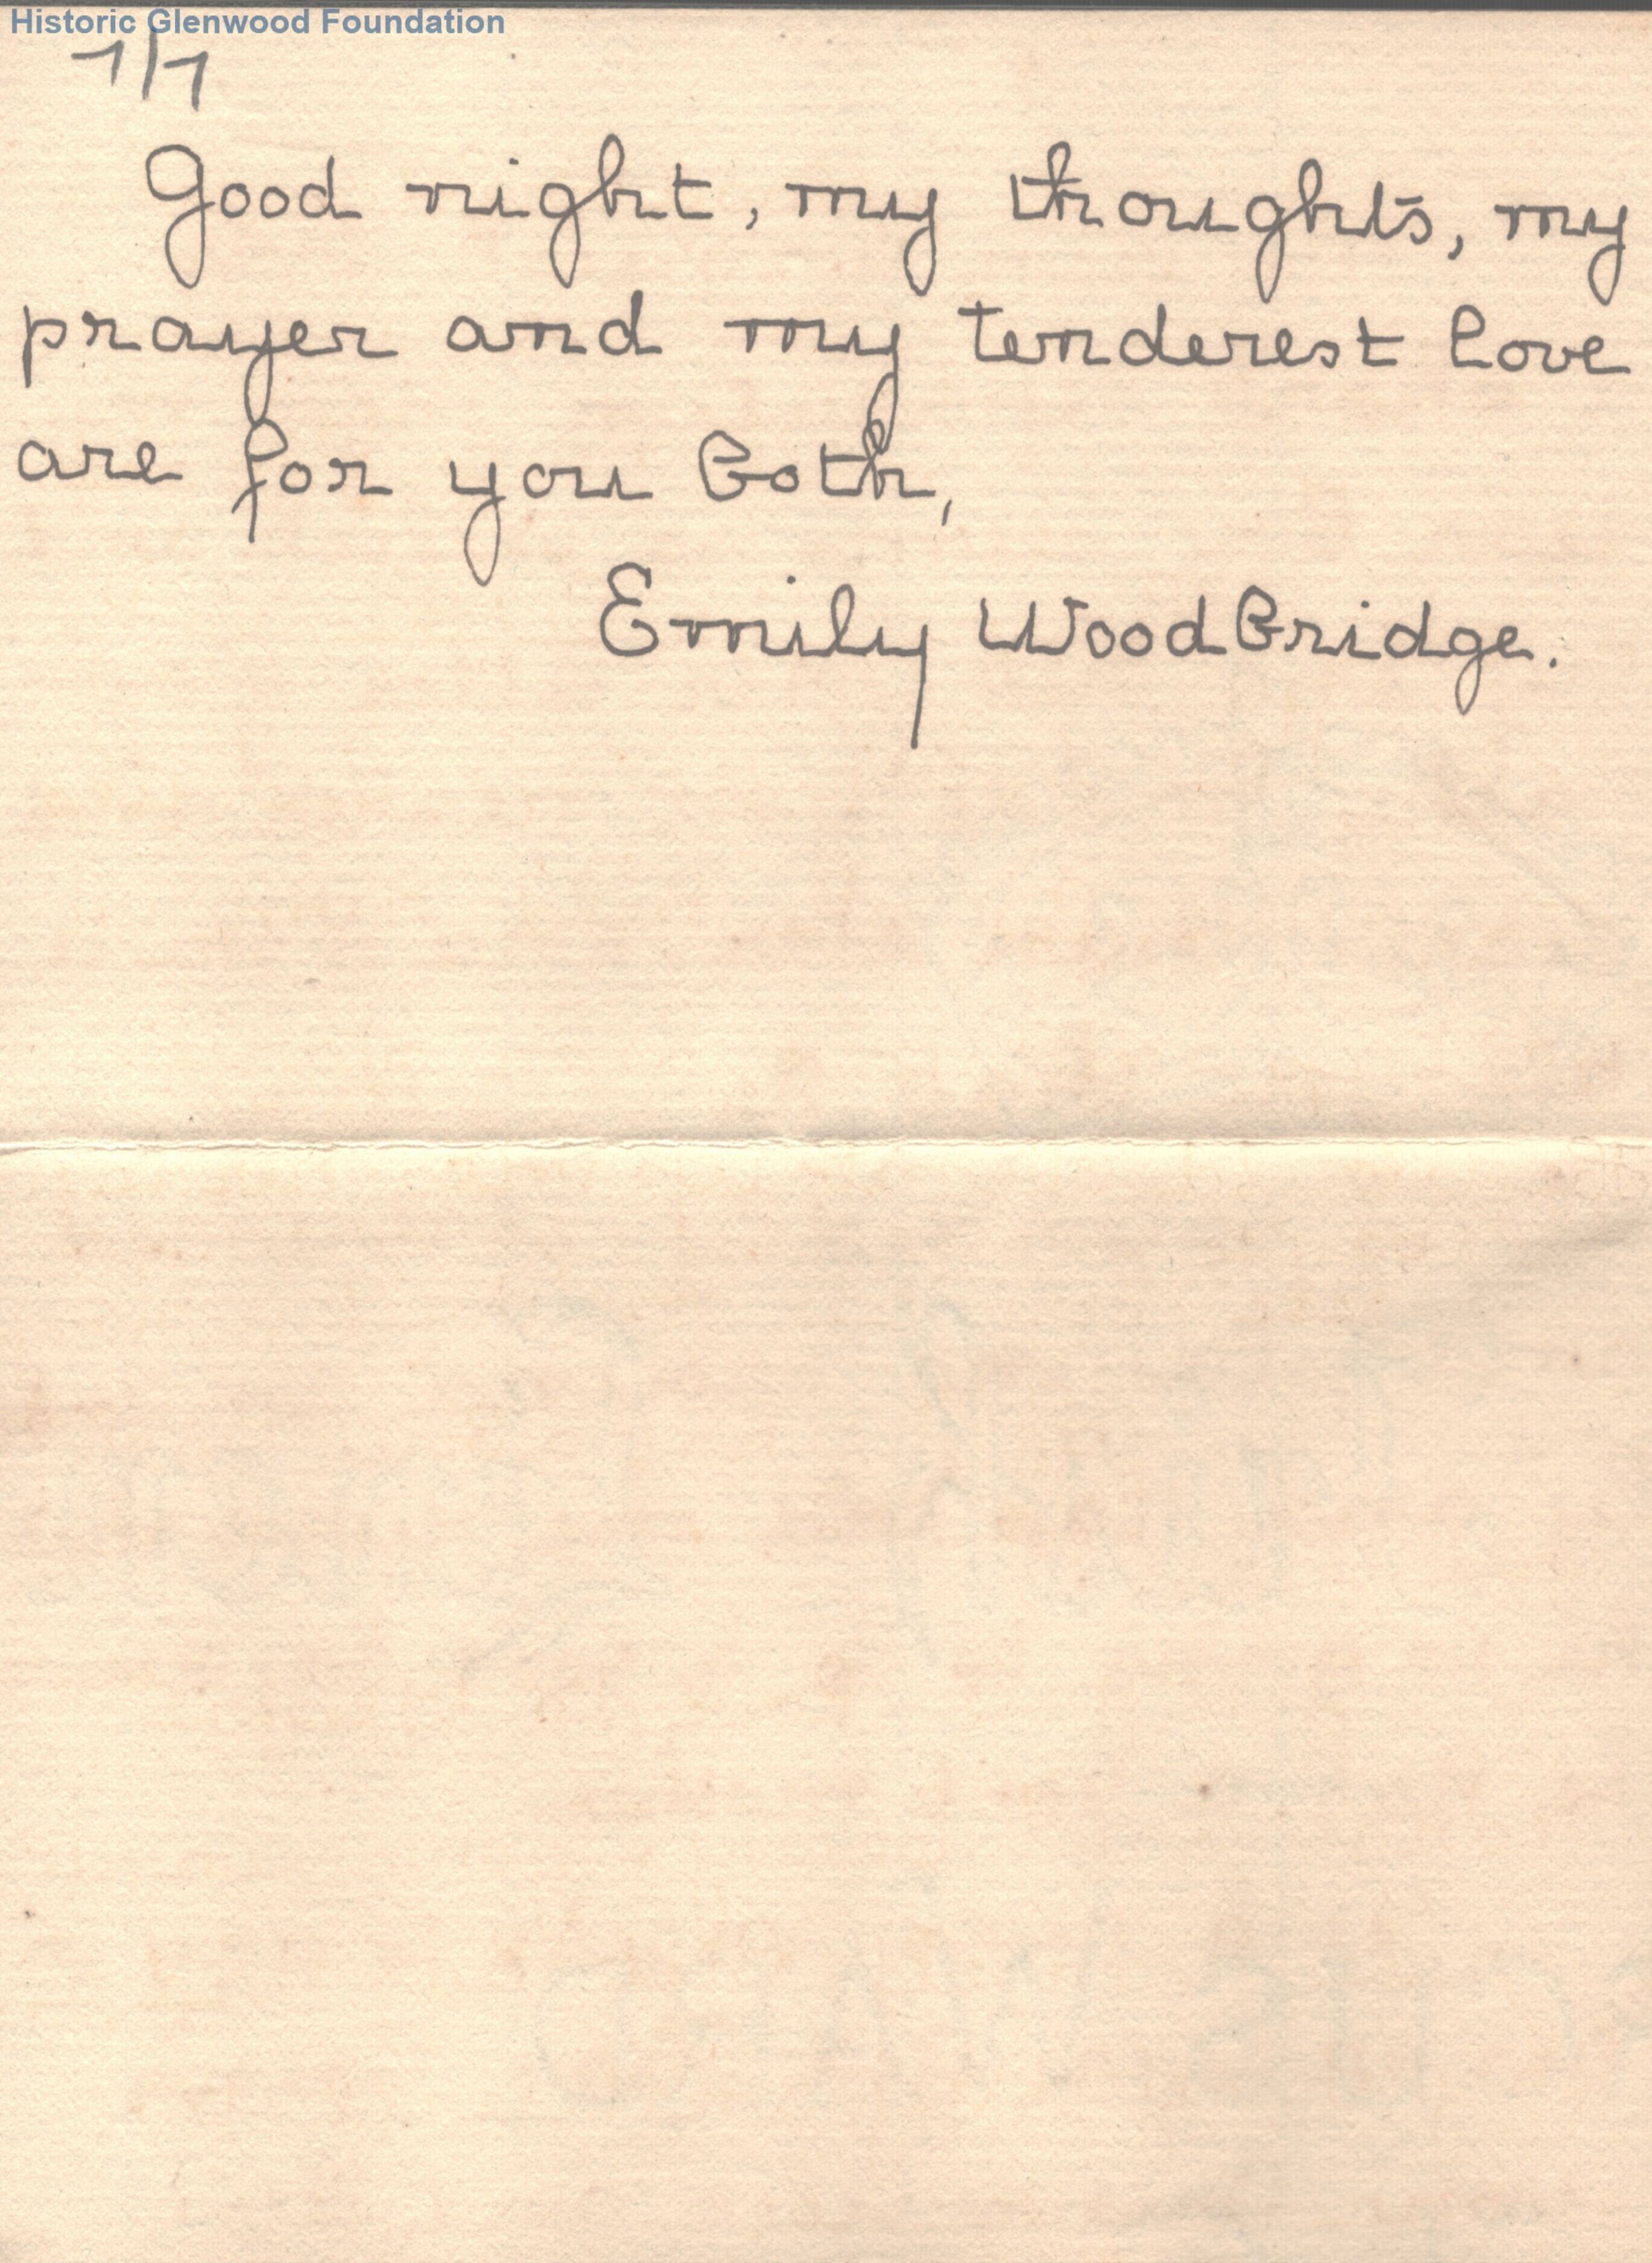 Historic Glenwood Foundation
7/7
Good night, my thoughts, my
prayer and my tenderest love
are for you both,
Emily Woodbridge.